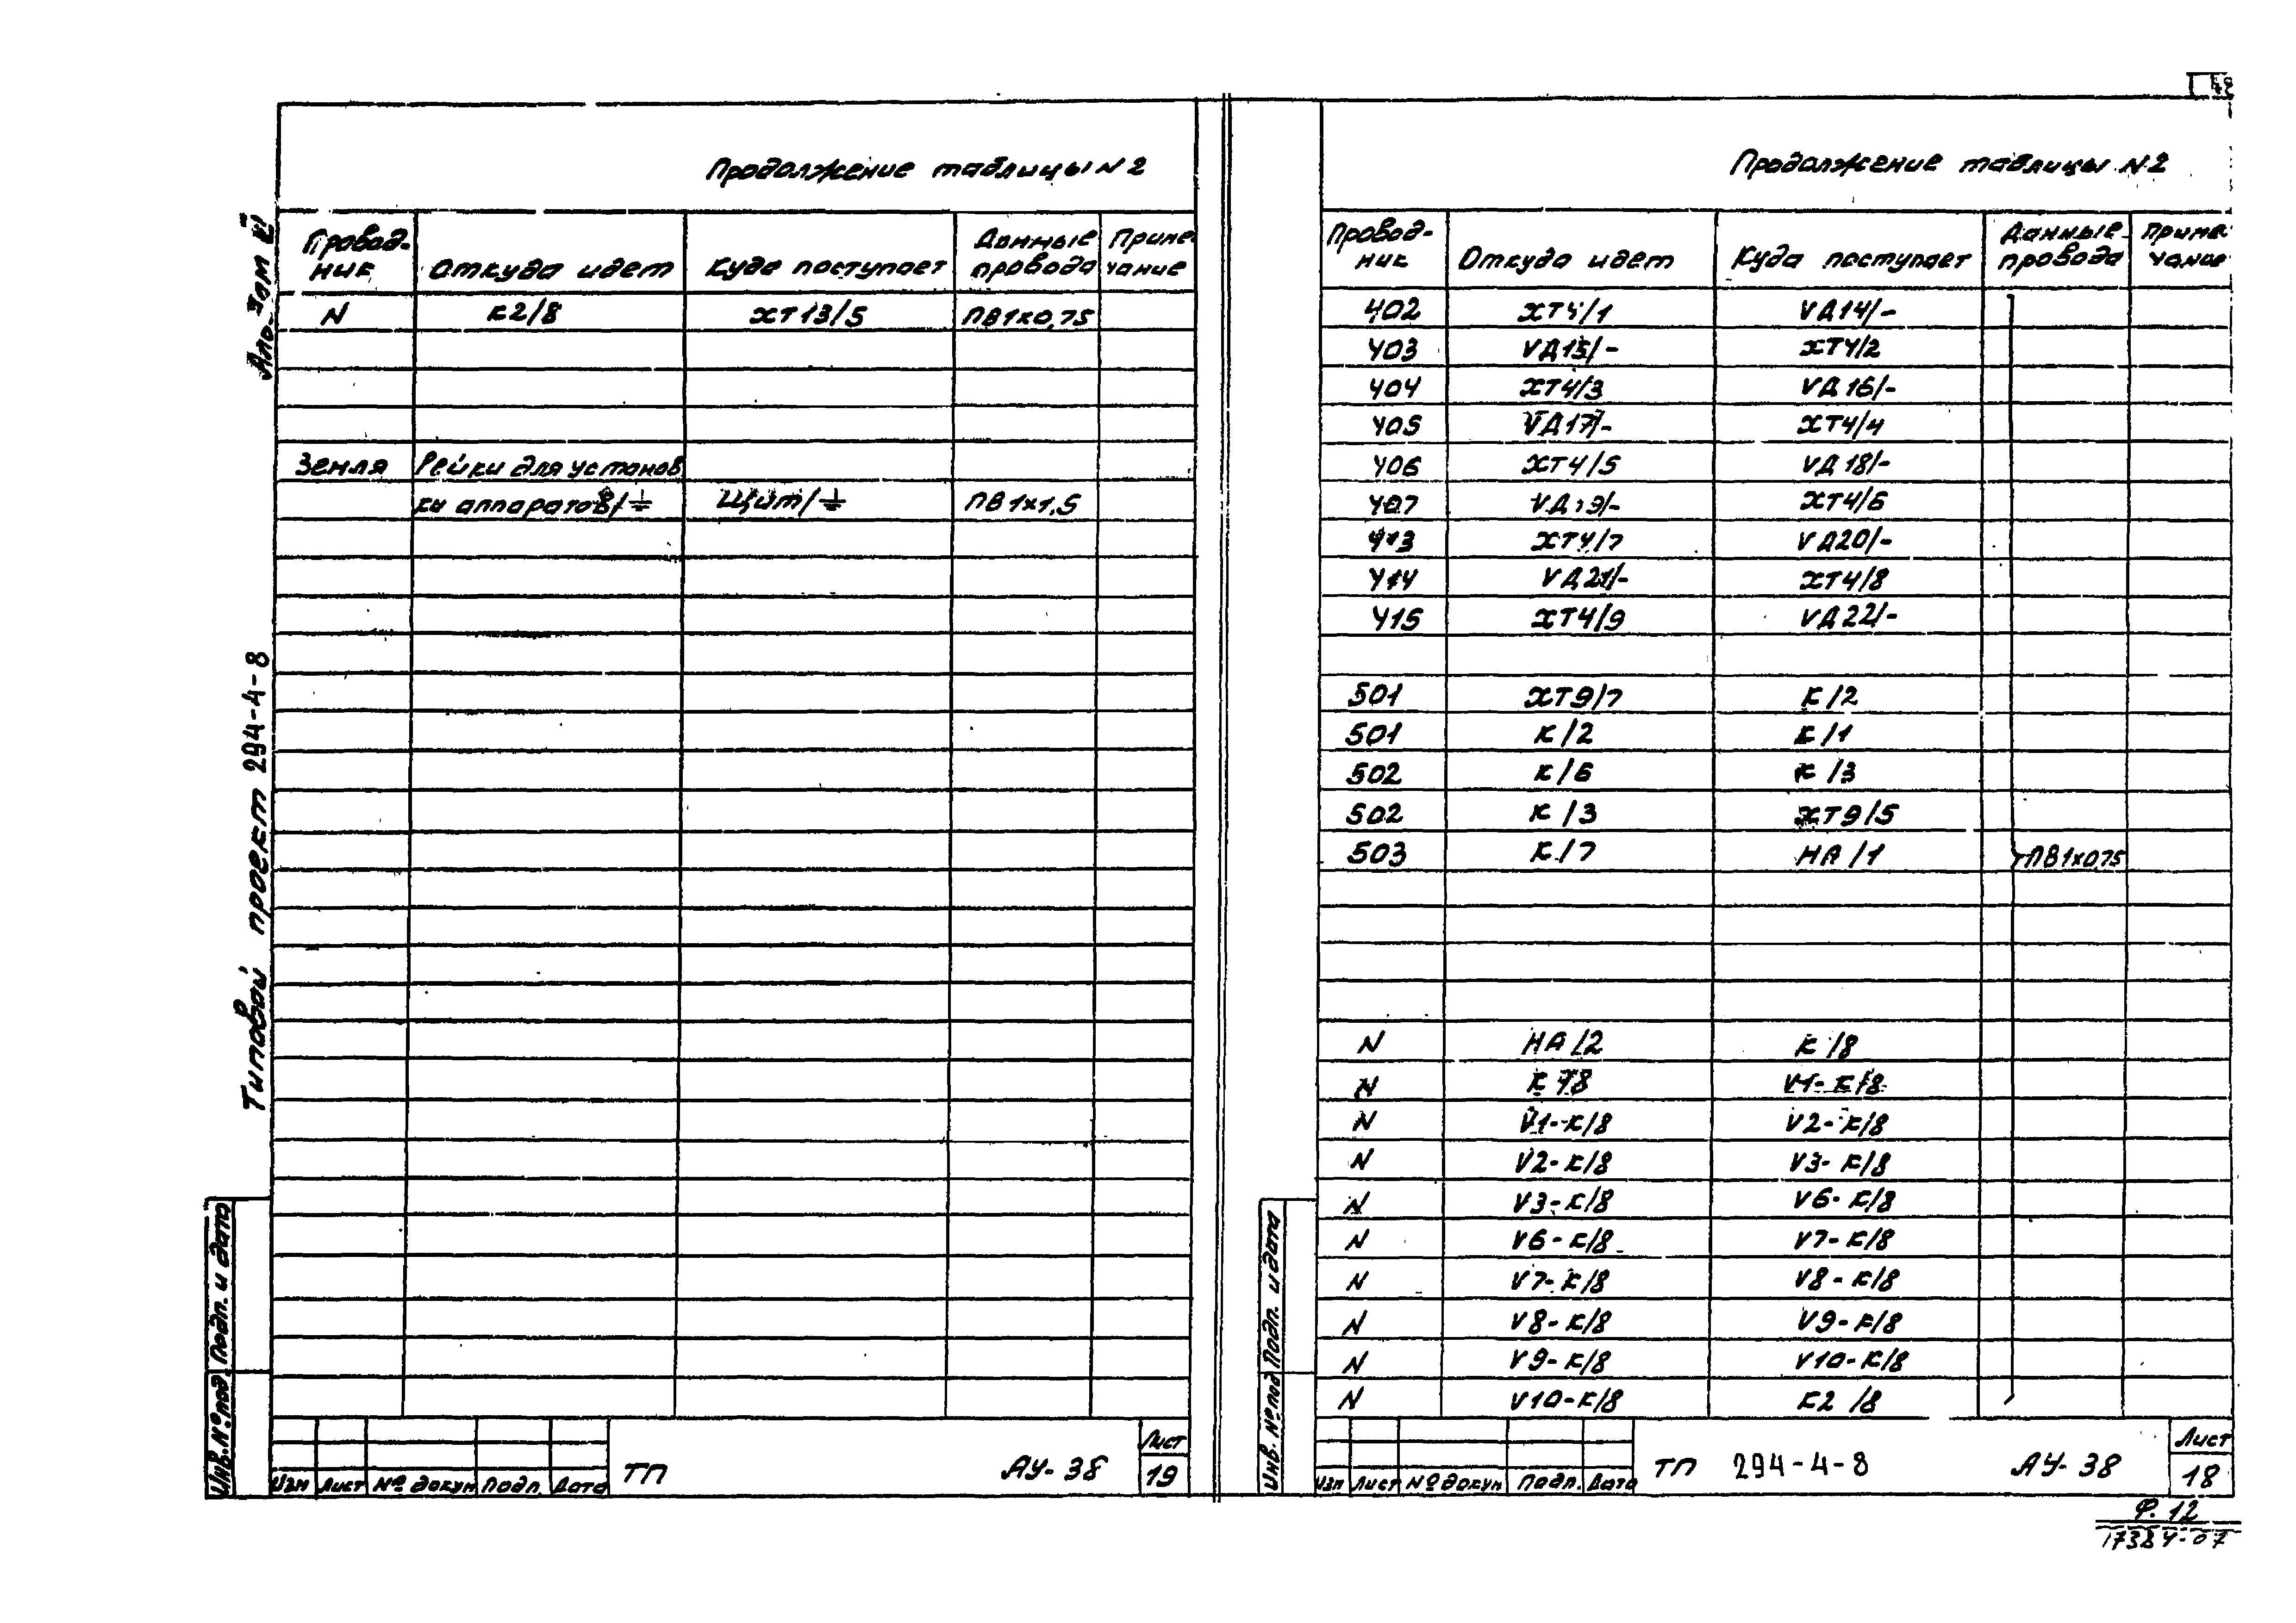 Продолжение таблицы N 2
Провод- Данные Приме
ник Откуда идет Куда поступает провода чание
N К2/8 ХТ13/5 ПВ1х0,75
Земля Рейки для установ
ки аппаратов/⏚ Щит/⏚ ПВ1х1,5
Типовой проект 294-4-8
Подп. и дата
Инв. № под
Лист
Изм Лист № докум Подп. Дата ТП АУ-38 19
Продолжение таблицы N 2
Провод- Данные Приме
ник Откуда идет Куда поступает провода чание
402 ХТ4/1 VД14/-
403 VД15/- ХТ4/2
404 ХТ4/3 VД16/-
405 VД17/- ХТ4/4
406 ХТ4/5 VД18/-
407 VД19/- ХТ4/6
413 ХТ4/7 VД20/-
414 VД21/- ХТ4/8
415 ХТ4/9 VД22/-
501 ХТ9/7 К/2
501 К/2 К/1
502 К/6 К/3
502 К/3 ХТ9/5
503 К/7 НА/1 ПВ1х0,75
N НА/2 К/8
N К/8 V1-К/8
N V1-К/8 V2-К/8
N V2-К/8 V3-К/8
N V3-К/8 V6-К/8
N V6-К/8 V7-К/8
N V7-К/8 V8-К/8
N V8-К/8 V9-К/8
N V9-К/8 V10-К/8
N V10-К/8 К2/8
Подп. и дата
Инв. № под
Лист
Изм Лист № докум Подп. Дата ТП 294-4-8 АУ-38 18
Ф. 12
17384-07